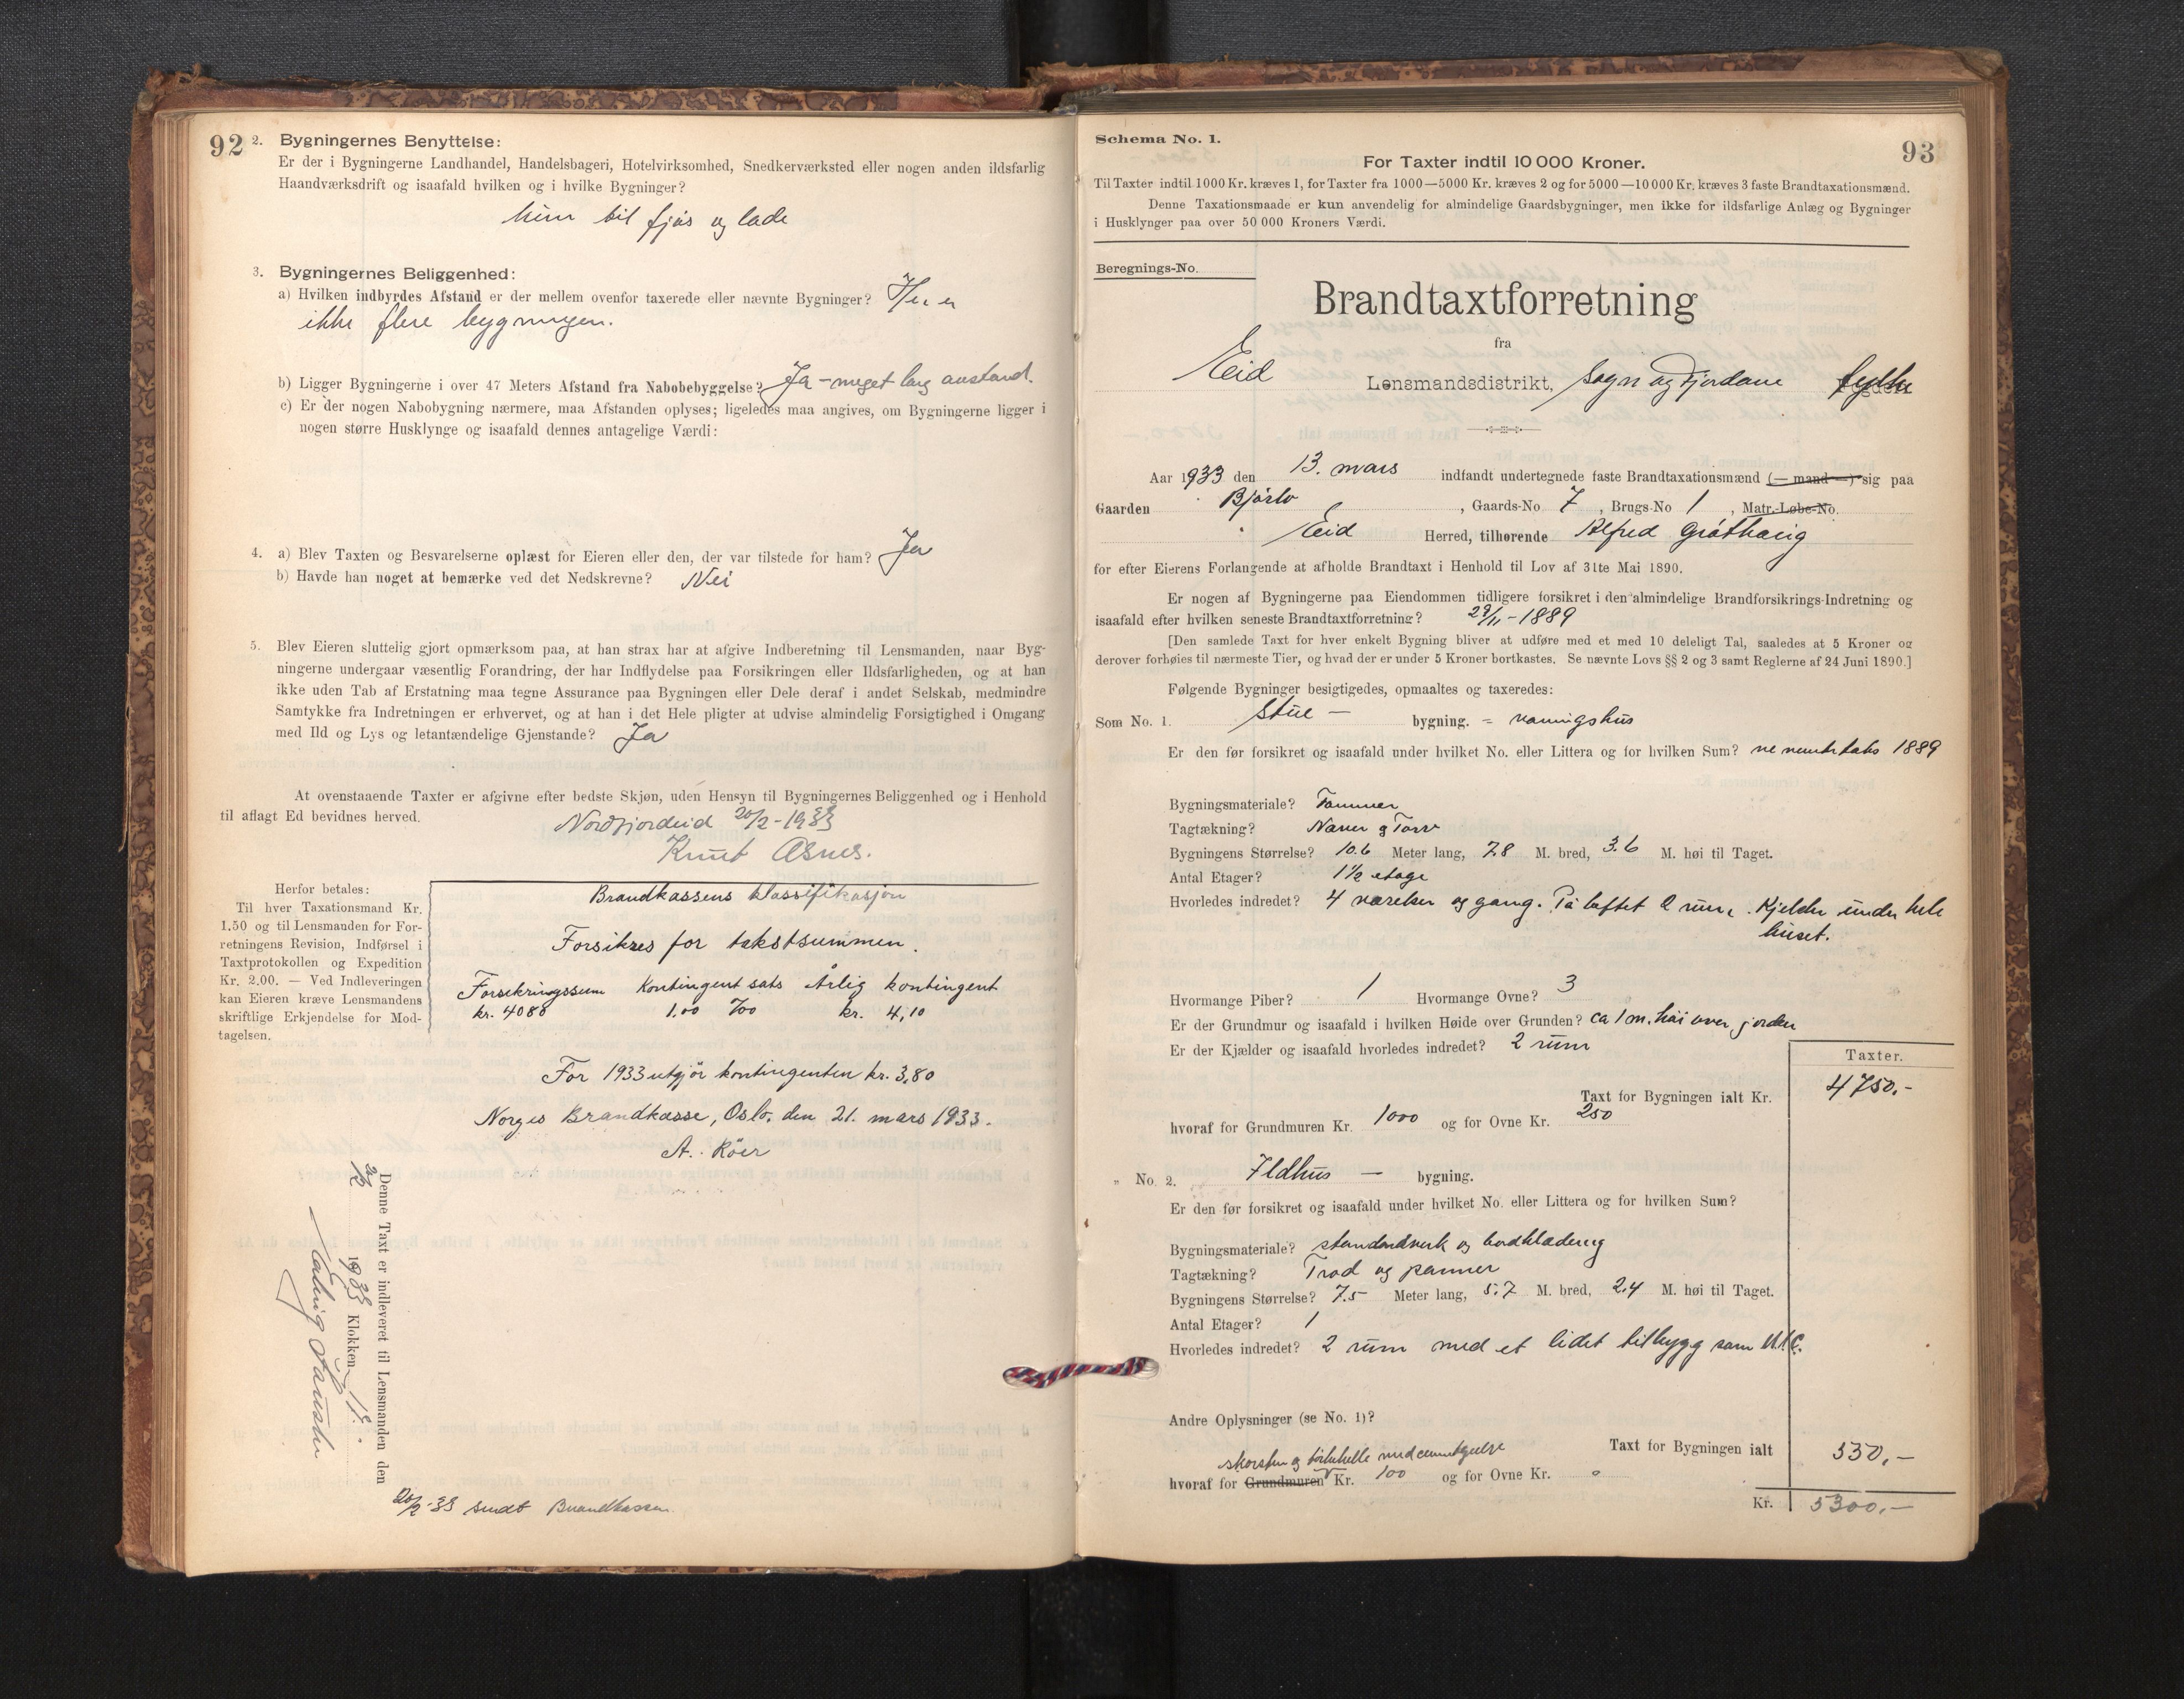 92
2. Bygningernes Benyttelse:
Er der i Bygningerne Landhandel, Handelsbageri, Hotelvirksomhed, Snedkerværksted eller nogen anden ildsfarlig
Haandværksdrift og isaafald hvilken og i hvilke Bygninger?
kun til fjøs og lade
3. Bygningernes Beliggenhed:
a) Hvilken indbyrdes Afstand er der mellem ovenfor taxerede eller nævnte Bygninger? Her er
ikke flere bygninger.
b) Ligger Bygningerne i over 47 Meters Afstand fra Nabobebyggelse? Ja - meget lang avstand.
c) Er der nogen Nabobygning nærmere, maa Afstanden oplyses; ligeledes maa angives, om Bygningerne ligger i
nogen større Husklynge og isaafald dennes antagelige Værdi:
4. a) Blev Taxten og Besvarelserne oplæst for Eieren eller den, der var tilstede for ham? Ja
b) Havde han noget at bemærke ved det Nedskrevne? Nei
5. Blev Eieren sluttelig gjort opmærksom paa, at han strax har at afgive Indberetning til Lensmanden, naar Byg-
ningerne undergaar væsentlig Forandring, der har Indflydelse paa Forsikringen eller Ildsfarligheden, og at han
ikke uden Tab af Erstatning maa tegne Assurance paa Bygningen eller Dele deraf i andet Selskab, medmindre
Samtykke fra Indretningen er erhvervet, og at han i det Hele pligter at udvise almindelig Forsigtighed i Omgang
med Ild og Lys og letantændelige Gjenstande? Ja
At ovenstaaende Taxter er afgivne efter bedste Skjøn, uden Hensyn til Bygningernes Beliggenhed og i Henhold
til aflagt Ed bevidnes herved.
Nordfjordeid 20/2-1933
Knut Åsnes.
Herfor betales:
Til hver Taxationsmand Kr.
1.50 og til Lensmanden for For-
retningens Revision, Indførsel i
Taxtprotokollen og Expedition
Kr. 2.00. — Ved Indleveringen
kan Eieren kræve Lensmandens
skriftlige Erkjendelse for Mod-
tagelsen.
Brandkassens klassifikasjon
Forsikres for takstsummen.
Forsikringssum Kontingent sats Årlig kontingent
kr. 4080 1.00 ‰ kr. 4,10
For 1933 utgjør kontingenten kr. 3,80
Norges Brandkasse, Oslo, den 21. mars 1933.
A. Röer
Denne Taxt er indleveret til Lensmanden den
20/2 1933 Klokken 18.
20/2-33 sendt Brandkassen.
93
Schema No. 1.
For Taxter indtil 10 000 Kroner.
Til Taxter indtil 1000 Kr. kræves 1, for Taxter fra 1000—5000 Kr. kræves 2 og for 5000—10 000 Kr. kræves 3 faste Brandtaxationsmænd.
Denne Taxationsmaade er kun anvendelig for almindelige Gaardsbygninger, men ikke for ildsfarlige Anlæg og Bygninger
i Husklynger paa over 50 000 Kroners Værdi.
Beregnings-No.
Brandtaxtforretning
fra
Eid Lensmandsdistrikt, Sogn og Fjordane fylke
Aar 1933 den 13. mars indfandt undertegnede faste Brandtaxationsmænd (— mand —) sig paa
Gaarden Bjørlo, Gaards-No 7, Brugs-No 1, Matr.-Løbe-No.
Eid Herred, tilhørende Alfred Gröthaug
for efter Eierens Forlangende at afholde Brandtaxt i Henhold til Lov af 31te Mai 1890.
Er nogen af Bygningerne paa Eiendommen tidligere forsikret i den almindelige Brandforsikrings-Indretning og
isaafald efter hvilken seneste Brandtaxtforretning? 29/11-1889
[Den samlede Taxt for hver enkelt Bygning bliver at udføre med et med 10 deleligt Tal, saaledes at 5 Kroner og
derover forhøies til nærmeste Tier, og hvad der er under 5 Kroner bortkastes. Se nævnte Lovs §§ 2 og 3 samt Reglerne af 24 Juni 1890.]
Følgende Bygninger besigtigedes, opmaaltes og taxeredes:
Som No. 1. Stue — bygning. = vaaningshus
Er den før forsikret og isaafald under hvilket No. eller Littera og for hvilken Sum? 1889
Bygningsmateriale? Tømmer
Tagtækning? Næver og Torv
Bygningens Størrelse? 10.6 Meter lang, 7.8 M. bred, 3.6 M. høi til Taget.
Antal Etager? 1½ etage
Hvorledes indredet? 4 værelser og gang. På loftet 2 rum. Kjelder under hele
huset.
Hvormange Piber? 1 Hvormange Ovne? 3
Er der Grundmur og isaafald i hvilken Høide over Grunden? ca 1 m. høi over jorden
Er der Kjælder og isaafald hvorledes indredet? 2 rum
Taxter.
Taxt for Bygningen ialt Kr. 4750.-
hvoraf for Grundmuren Kr. 1000 og for Ovne Kr. 250
" No. 2. Ildhus — bygning.
Er den før forsikret og isaafald under hvilket No. eller Littera og for hvilken Sum?
Bygningsmateriale? standardverk og bordklædning
Tagtækning? Trod og panner
Bygningens Størrelse? 7.5 Meter lang, 5.7 M. bred, 2.4 M. høi til Taget.
Antal Etager? 1
Hvorledes indredet? 2 rum med et lidet tilbygg som W.C.
Andre Oplysninger (se No. 1)?
Taxt for Bygningen ialt 550.-
skorsten og
hvoraf for Grundmuren Kr. 100 og for Ovne Kr. 0
Kr. 5300.-